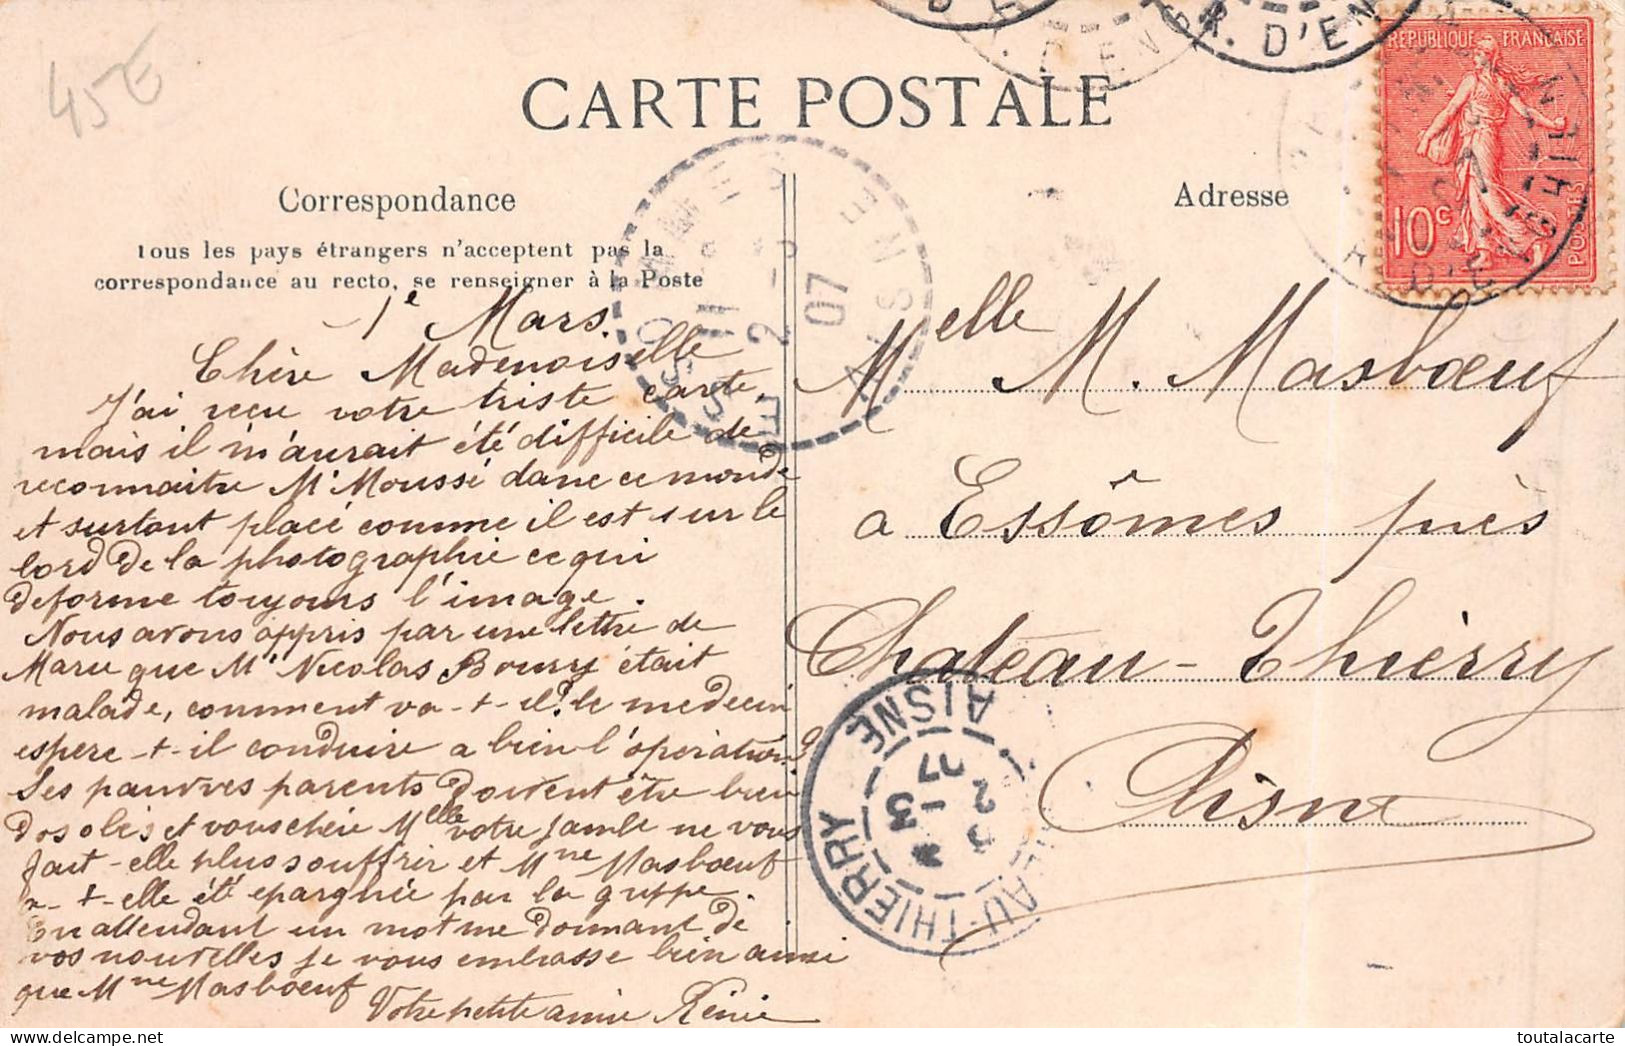 45€
CARTE POSTALE
Correspondance
Tous les pays étrangers n'acceptent pas la
correspondance au recto, se renseigner à la Poste
1e Mars.
Chère Mademoiselle
J'ai reçu votre triste carte,
mais il m'aurait été difficile de
reconnaitre Mr Moussé dans ce monde
et surtout placé comme il est sur le
bord de la photographie ce qui
deforme toujours l'image.
Nous avons appris par une lettre de
Marie que Mr Nicolas Bourry était
malade, comment va-t-il? le medecin
espere-t-il conduire a bien l'opération?
Ses pauvres parents doivent être bien
désolés et vous chère Melle votre jambe ne vous
fait-elle plus souffrir et Mme Masbœuf
a-t-elle été epargnée par la grippe.
En attendant un mot me donnant de
vos nouvelles je vous embrasse bien ainsi
que Mme Masbœuf
Votre petite amie Rénée
Adresse
Melle M. Masbœuf
a Essômes près
Château-Thièrry
Aisne
REPUBLIQUE FRANÇAISE
10c
POSTES
AISNE
11
2 -3
07
CHATEAU-THIERRY
AISNE
2 -3
07
R. D'EN
toutalacarte